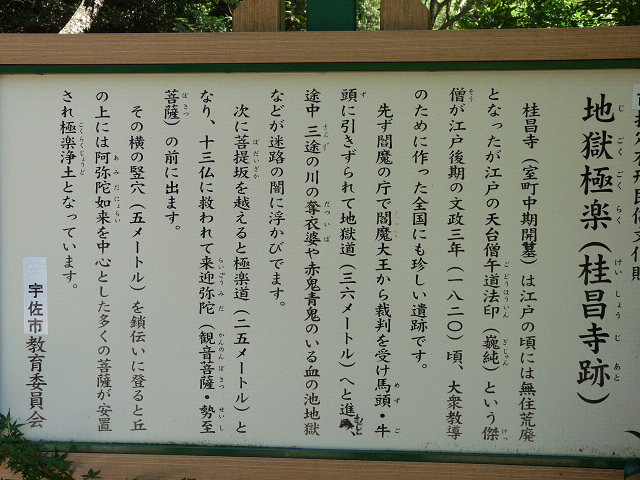 地獄極楽（桂昌寺跡）
桂昌寺（室町中期開基）は江戸の頃には無住荒廃
となったが江戸の天台僧午道法印（巍純）という傑
僧が江戸後期の文政三年（一八二〇）頃、大衆教導
のために作った全国にも珍しい遺跡です。
先ず閻魔の庁で閻魔大王から裁判を受け馬頭・牛
頭に引きずられて地獄道（三六メートル）へと進
途中 三途の川の奪衣婆や赤鬼青鬼のいる血の池地獄
などが迷路の闇に浮かびでます。
次に菩提坂を越えると極楽道（二五メートル）と
なり、十三仏に救われて来迎弥陀（観音菩薩・勢至
菩薩）の前に出ます。
その横の竪穴（五メートル）を鎖伝いに登ると丘
の上には阿弥陀如来を中心とした多くの菩薩が安置
され極楽浄土となっています。
宇佐市教育委員会